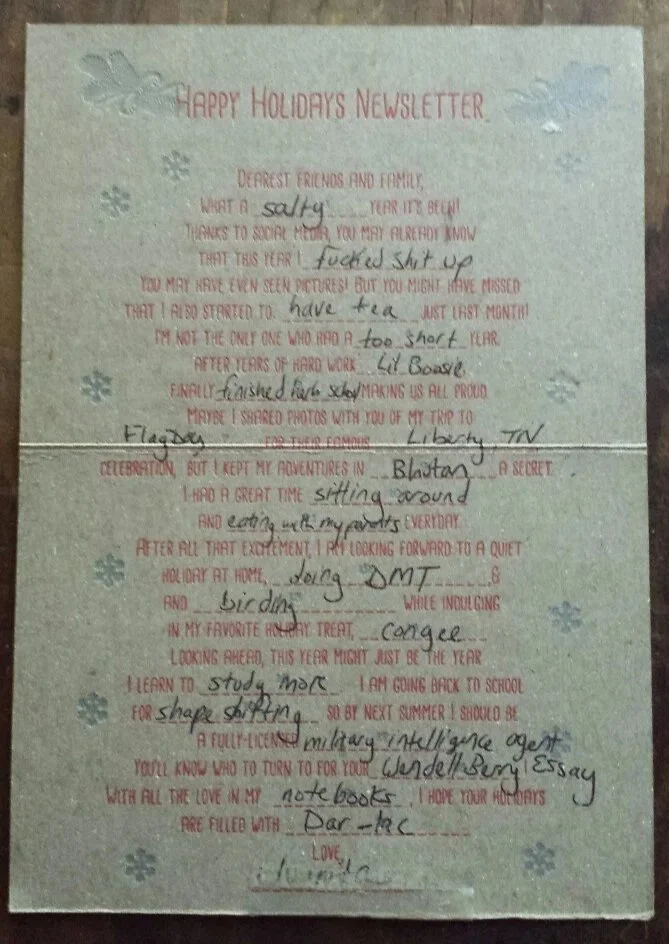 HAPPY HOLIDAYS NEWSLETTER
DEAREST FRIENDS AND FAMILY,
WHAT A salty YEAR IT'S BEEN!
THANKS TO SOCIAL MEDIA, YOU MAY ALREADY KNOW
THAT THIS YEAR I fucked shit up
YOU MAY HAVE EVEN SEEN PICTURES! BUT YOU MIGHT HAVE MISSED
THAT I ALSO STARTED TO have tea JUST LAST MONTH!
I'M NOT THE ONLY ONE WHO HAD A too short YEAR.
AFTER YEARS OF HARD WORK Lil Boosie
FINALLY finished MAKING US ALL PROUD.
MAYBE I SHARED PHOTOS WITH YOU OF MY TRIP TO
Flag Day FOR THEIR FAMOUS Liberty, TN
CELEBRATION, BUT I KEPT MY ADVENTURES IN Bhutan A SECRET.
I HAD A GREAT TIME sitting around
AND eating with my parents EVERYDAY.
AFTER ALL THAT EXCITEMENT, I AM LOOKING FORWARD TO A QUIET
HOLIDAY AT HOME, doing DMT &
AND birding WHILE INDULGING
IN MY FAVORITE HOLIDAY TREAT, congee
LOOKING AHEAD, THIS YEAR MIGHT JUST BE THE YEAR
I LEARN TO study more I AM GOING BACK TO SCHOOL
FOR shape shifting SO BY NEXT SUMMER I SHOULD BE
A FULLY-LICENSED military intelligence agent
YOU'LL KNOW WHO TO TURN TO FOR YOUR Wendell Berry Essay
WITH ALL THE LOVE IN MY notebooks, I HOPE YOUR HOLIDAYS
ARE FILLED WITH Dar-lac
LOVE,